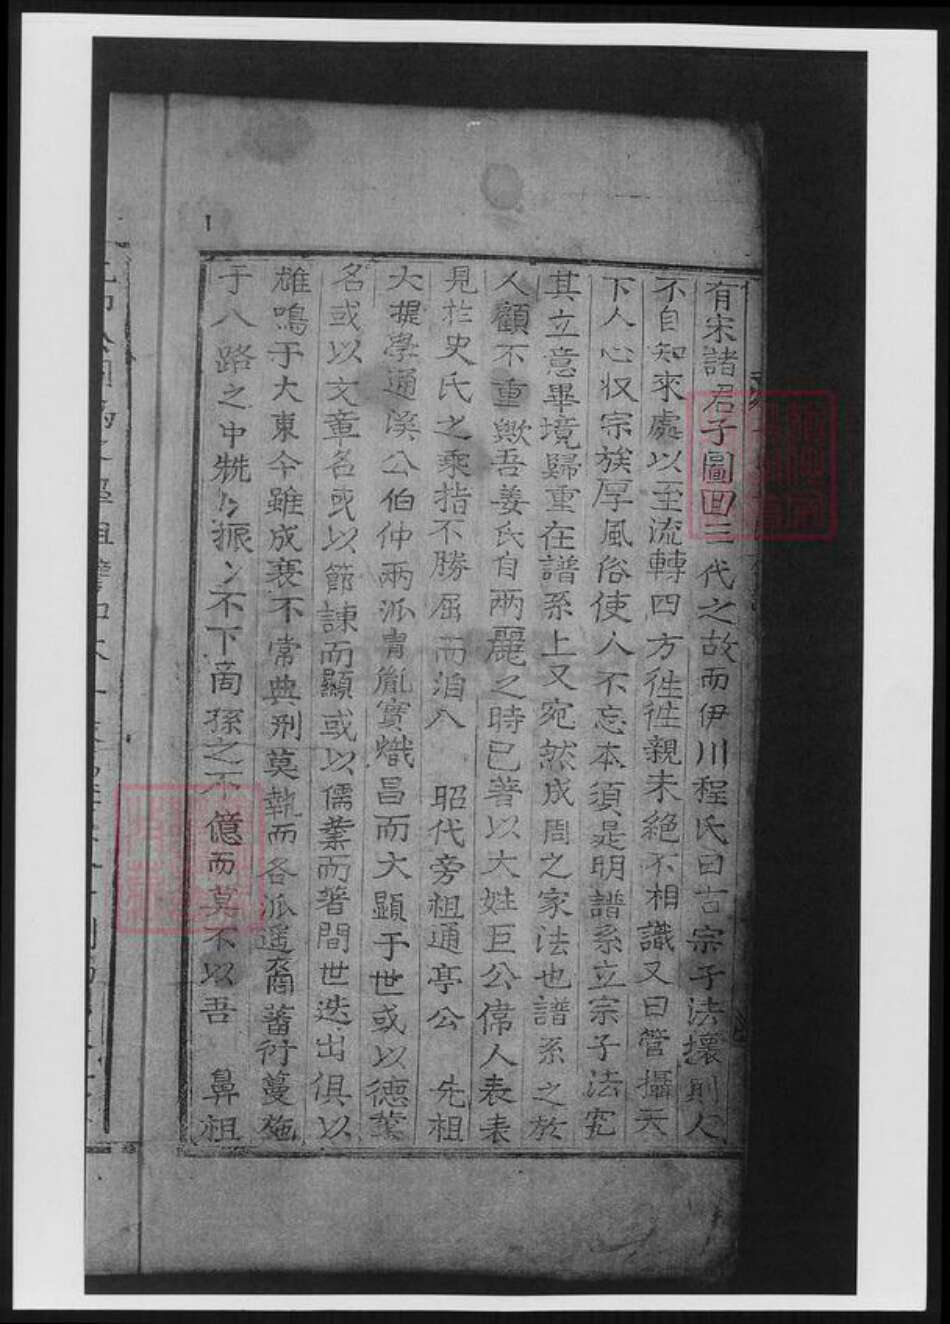 有宋諸君子圖回三代之故而伊川程氏曰古宗子法壞則人
不自知來處以至流轉四方徃徃親未絶不相識又曰管攝天
下人心収宗族厚風俗使人不忘本須是明譜系立宗子法究
其立意畢境歸重在譜系上又宛然成周之家法也譜系之於
人顧不重歟吾姜氏自兩麗之時已著以大姓巨公偉人表表
見於史氏之乘指不勝屈而洎入 昭代旁祖通亭公 先祖
大提學通溪公伯仲兩派胄胤實熾昌而大顯于世或以德業
名或以文章名或以節諫而顯或以儒業而著間世迭出俱以
雄鳴于大東今雖成衰不常典刑莫執而各派遙裔蕃衍蔓施
于八路之中兟〻振〻不下商孫之不億而莫不以吾 鼻祖